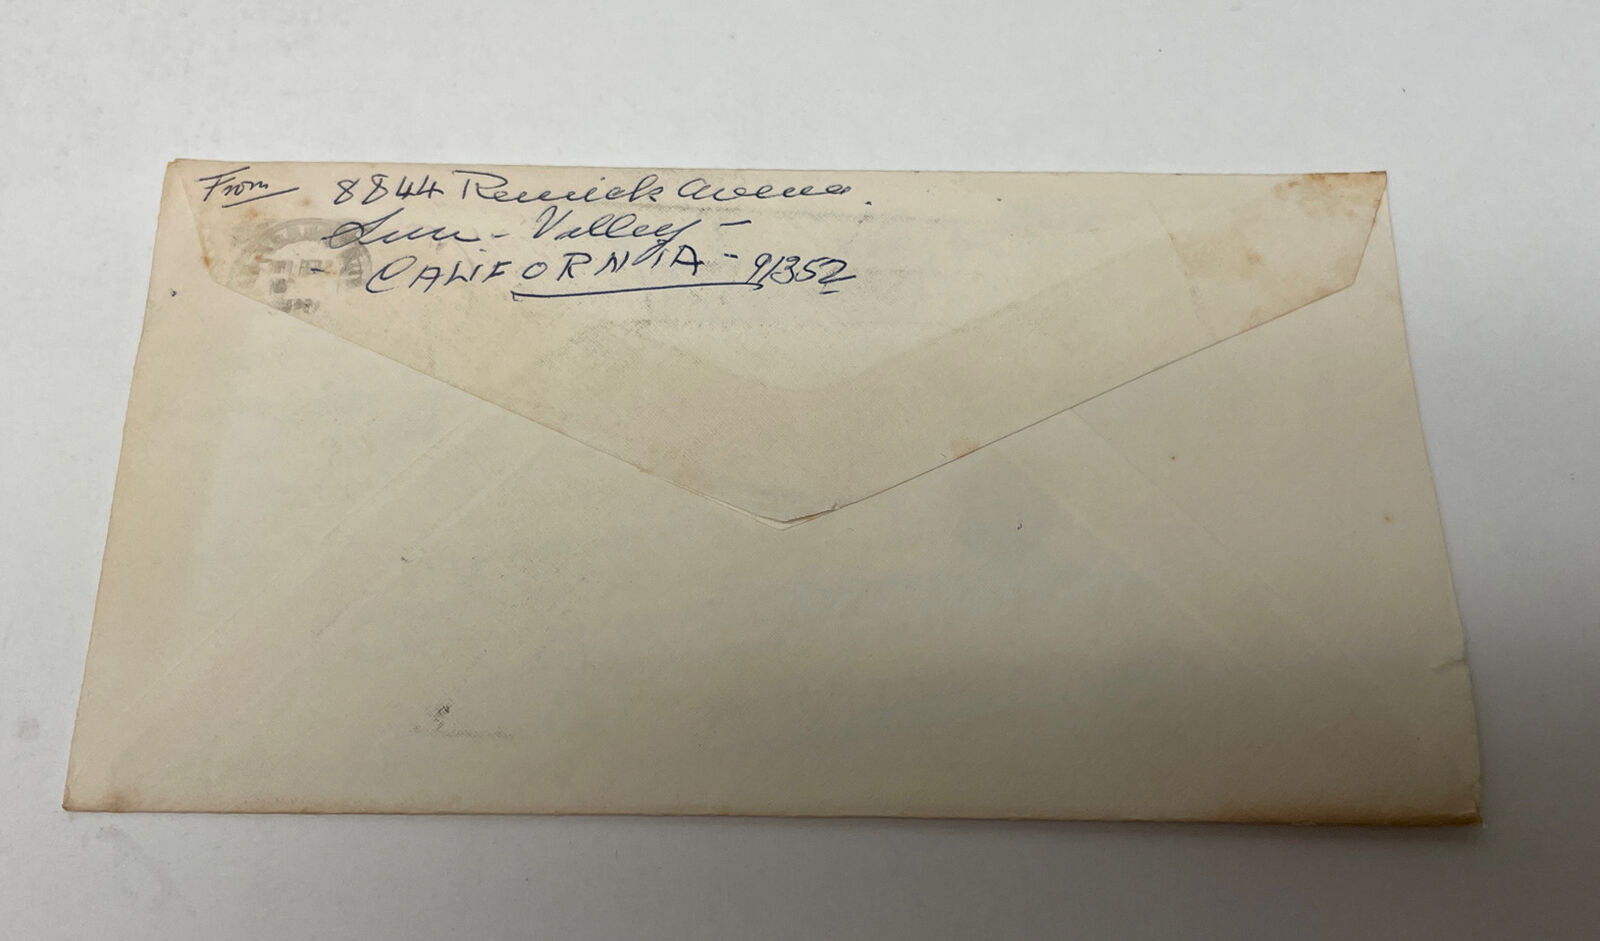 From 8844 Remick Avenue.
Sun - Valley -
- CALIFORNIA - 91352